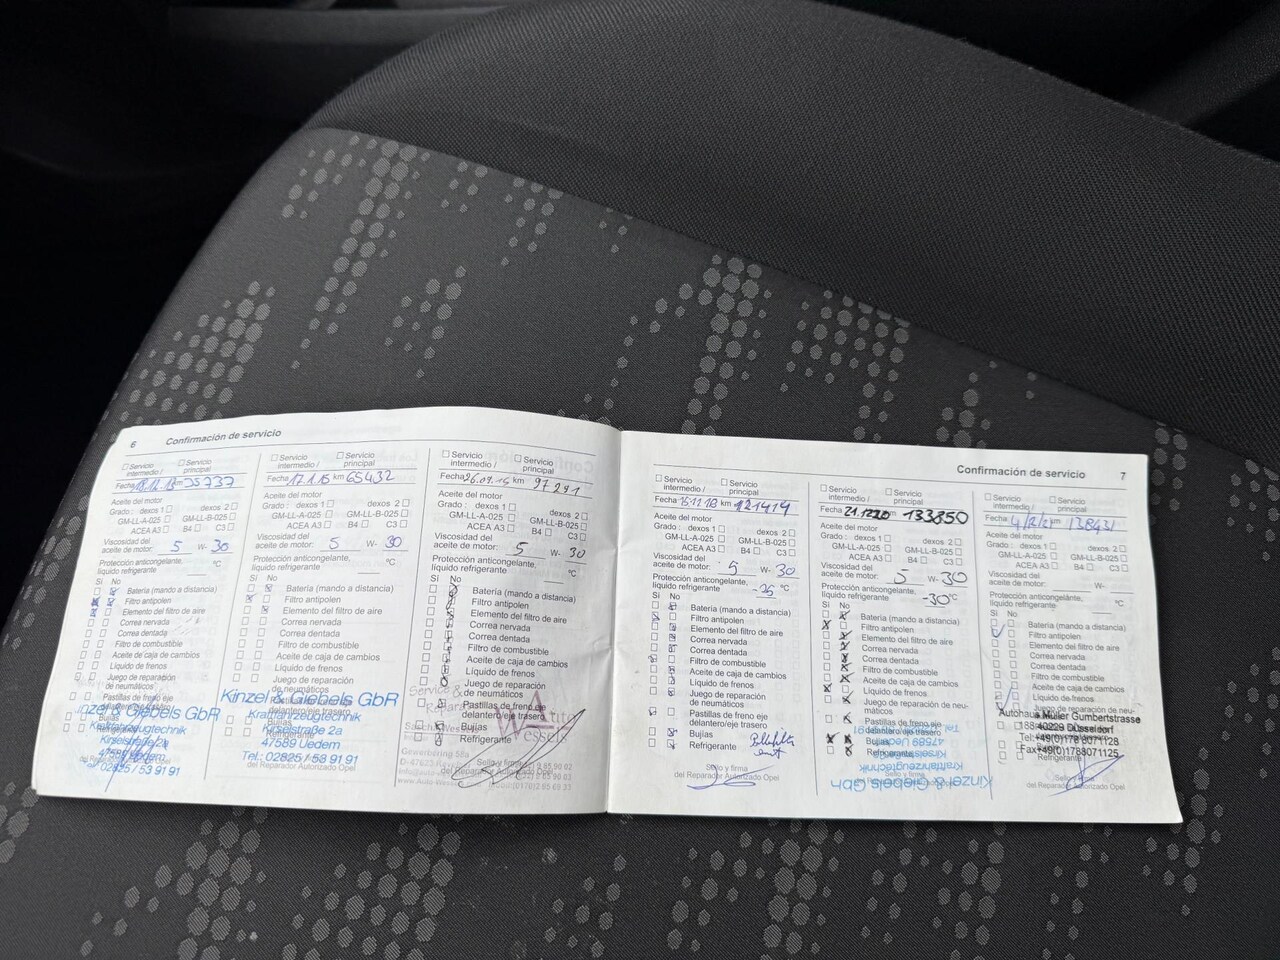 6 Confirmación de servicio
Servicio intermedio / Servicio principal
Fecha km
Aceite del motor
Grado: dexos 1 dexos 2
GM-LL-A-025 GM-LL-B-025
ACEA A3 B4 C3
Viscosidad del
aceite de motor: 5 W- 30
Protección anticongelante,
líquido refrigerante °C
Sí No
Batería (mando a distancia)
Filtro antipolen
Elemento del filtro de aire
Correa nervada
Correa dentada
Filtro de combustible
Aceite de caja de cambios
Líquido de frenos
Juego de reparación
de neumáticos
Pastillas de freno eje
Bujías
Kraftfahrzeugtechnik
Kirselstraße 2a
02825 / 53 91 91
Servicio intermedio / Servicio principal
Fecha 17.1.15 km 65432
Aceite del motor
Grado: dexos 1 dexos 2
GM-LL-A-025 GM-LL-B-025
ACEA A3 B4 C3
Viscosidad del
aceite de motor: 5 W- 30
Protección anticongelante,
líquido refrigerante °C
Sí No
Batería (mando a distancia)
Filtro antipolen
Elemento del filtro de aire
Correa nervada
Correa dentada
Filtro de combustible
Aceite de caja de cambios
Líquido de frenos
Juego de reparación
de neumáticos
Kinzel & Giebels GbR
Kraftfahrzeugtechnik
Kirselstraße 2a
47589 Uedem
Tel.: 02825 / 53 91 91
del Reparador Autorizado Opel
Servicio intermedio / Servicio principal
Fecha km 97291
Aceite del motor
Grado: dexos 1 dexos 2
GM-LL-A-025 GM-LL-B-025
ACEA A3 B4 C3
Viscosidad del
aceite de motor: 5 W- 30
Protección anticongelante,
líquido refrigerante °C
Sí No
Batería (mando a distancia)
Filtro antipolen
Elemento del filtro de aire
Correa nervada
Correa dentada
Filtro de combustible
Aceite de caja de cambios
Líquido de frenos
Juego de reparación
de neumáticos
Pastillas de freno eje
delantero/eje trasero
Bujías
Refrigerante
Sello y firma
del Reparador Autorizado Opel
Confirmación de servicio 7
Servicio intermedio / Servicio principal
Fecha 15.11.18 km 121414
Aceite del motor
Grado: dexos 1 dexos 2
GM-LL-A-025 GM-LL-B-025
ACEA A3 B4 C3
Viscosidad del
aceite de motor: 5 W- 30
Protección anticongelante,
líquido refrigerante °C
Sí No
Batería (mando a distancia)
Filtro antipolen
Elemento del filtro de aire
Correa nervada
Correa dentada
Filtro de combustible
Aceite de caja de cambios
Líquido de frenos
Juego de reparación
de neumáticos
Pastillas de freno eje
delantero/eje trasero
Bujías
Refrigerante
Sello y firma
del Reparador Autorizado Opel
Servicio intermedio / Servicio principal
Fecha 21.12.20 km 133850
Aceite del motor
Grado: dexos 1 dexos 2
GM-LL-A-025 GM-LL-B-025
ACEA A3 B4 C3
Viscosidad del
aceite de motor: 5 W- 30
Protección anticongelante,
líquido refrigerante -30 °C
Sí No
Batería (mando a distancia)
Filtro antipolen
Elemento del filtro de aire
Correa nervada
Correa dentada
Filtro de combustible
Aceite de caja de cambios
Líquido de frenos
Juego de reparación de neumáticos
Pastillas de freno eje
delantero/eje trasero
Bujías
Refrigerante
47589 Uedem
Kraftfahrzeugtechnik
Kinzel & Giebels Gbh
Servicio intermedio / Servicio principal
Fecha km 138431
Aceite del motor
Grado: dexos 1 dexos 2
GM-LL-A-025 GM-LL-B-025
ACEA A3 B4 C3
Viscosidad del
aceite de motor: W-
Protección anticongelante,
líquido refrigerante °C
Sí No
Batería (mando a distancia)
Filtro antipolen
Elemento del filtro de aire
Correa nervada
Correa dentada
Filtro de combustible
Aceite de caja de cambios
Líquido de frenos
Autohaus Müller Gumbertstrasse
40229 Düsseldorf
Tel:+49(0)178 8071128
Fax+49(0)1788071125
Refrigerante
Sello y firma
del Reparador Autorizado Opel